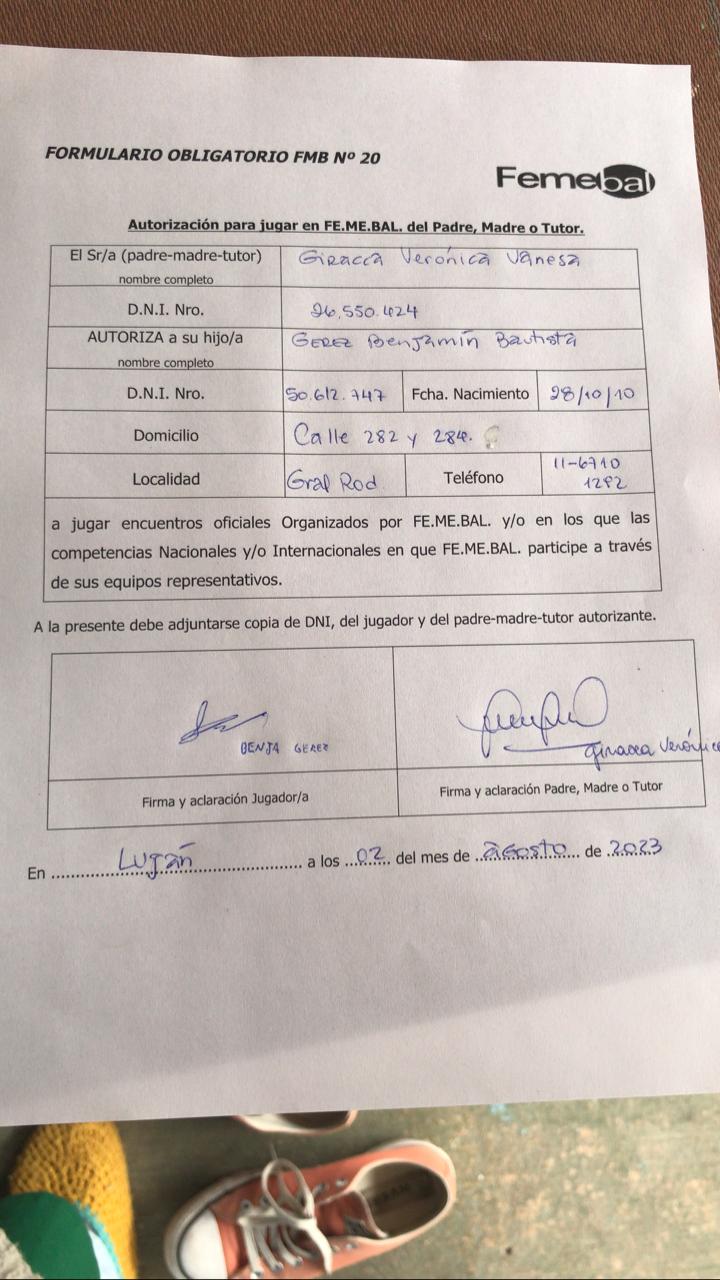 FORMULARIO OBLIGATORIO FMB Nº 20
Femebal
Autorización para jugar en FE.ME.BAL. del Padre, Madre o Tutor.
El Sr/a (padre-madre-tutor) Giracca Verónica Vanesa
nombre completo
D.N.I. Nro. 26.550.424
AUTORIZA a su hijo/a GEREZ Benjamín Bautista
nombre completo
D.N.I. Nro. 50.612.747 Fcha. Nacimiento 28/10/10
Domicilio Calle 282 y 284.
Localidad Gral Rod. Teléfono 11-6710
1292
a jugar encuentros oficiales Organizados por FE.ME.BAL. y/o en los que las
competencias Nacionales y/o Internacionales en que FE.ME.BAL. participe a través
de sus equipos representativos.
A la presente debe adjuntarse copia de DNI, del jugador y del padre-madre-tutor autorizante.
BENJA GEREZ
Giracca Verónica
Firma y aclaración Jugador/a
Firma y aclaración Padre, Madre o Tutor
En Luján a los 02 del mes de Agosto de 2023